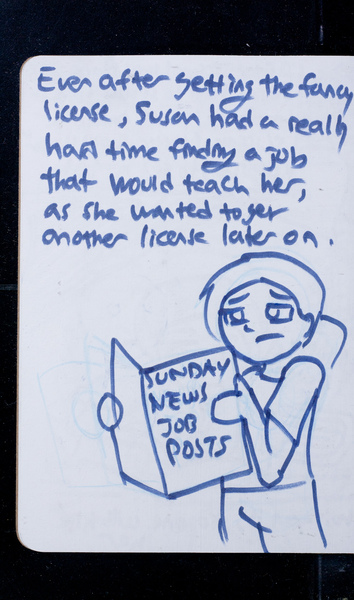 Even after getting the fancy
license, Susan had a really
hard time finding a job
that would teach her,
as she wanted to get
another license later on.
SUNDAY
NEWS
JOB
POSTS